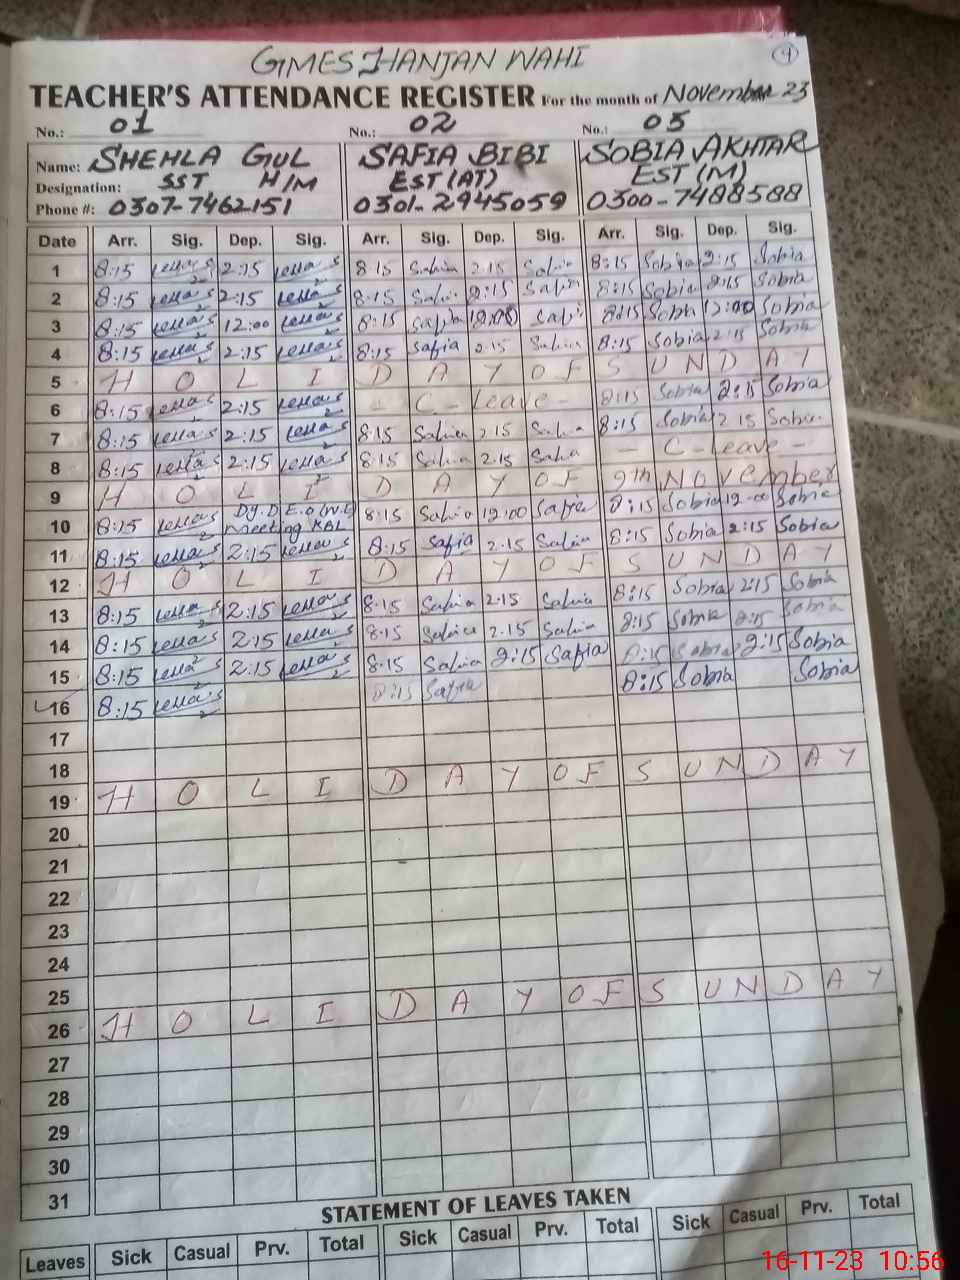 GMES JHANJAN WAHI
4
TEACHER'S ATTENDANCE REGISTER For the month of November 23
No.: 01 No.: 02 No.: 03
Name: SHEHLA GUL SAFIA BIBI SOBIA AKHTAR
Designation: SST H/M EST (AT) EST (M)
Phone #: 0307-7462151 0301-2945059 0300-7488588
Date Arr. Sig. Dep. Sig. Arr. Sig. Dep. Sig. Arr. Sig. Dep. Sig.
1 8:15 2:15 8:15 Safia 2:15 Safia 8:15 Sobia 2:15 Sobia
2 8:15 2:15 8:15 Safia 2:15 Safia 8:15 Sobia 2:15 Sobia
3 8:15 12:00 8:15 Safia 12:00 Safia 8:15 Sobia 12:00 Sobia
4 8:15 2:15 8:15 Safia 2:15 Safia 8:15 Sobia 2:15 Sobia
5 H O L I D A Y OF S U N D A Y
6 8:15 2:15 - C - Leave - 8:15 Sobia 2:15 Sobia
7 8:15 2:15 8:15 Safia 2:15 Safia 8:15 Sobia 2:15 Sobia
8 8:15 2:15 8:15 Safia 2:15 Safia - C - Leave -
9 H O L I D A Y OF 9th November
10 8:15 Dy. D.E.O (W.E) Meeting KBL 8:15 Safia 12:00 Safia 8:15 Sobia 12:00 Sobia
11 8:15 2:15 8:15 Safia 2:15 Safia 8:15 Sobia 2:15 Sobia
12 H O L I D A Y OF S U N D A Y
13 8:15 2:15 8:15 Safia 2:15 Safia 8:15 Sobia 2:15 Sobia
14 8:15 2:15 8:15 Safia 2:15 Safia 8:15 Sobia 2:15 Sobia
15 8:15 2:15 8:15 Safia 2:15 Safia 8:15 Sobia 2:15 Sobia
16 8:15 8:15 Safia 8:15 Sobia Sobia
17
18
19 H O L I D A Y OF S U N D A Y
20
21
22
23
24
25
26 H O L I D A Y OF S U N D A Y
27
28
29
30
31
STATEMENT OF LEAVES TAKEN
Leaves Sick Casual Prv. Total Sick Casual Prv. Total Sick Casual Prv. Total
16-11-23 10:56